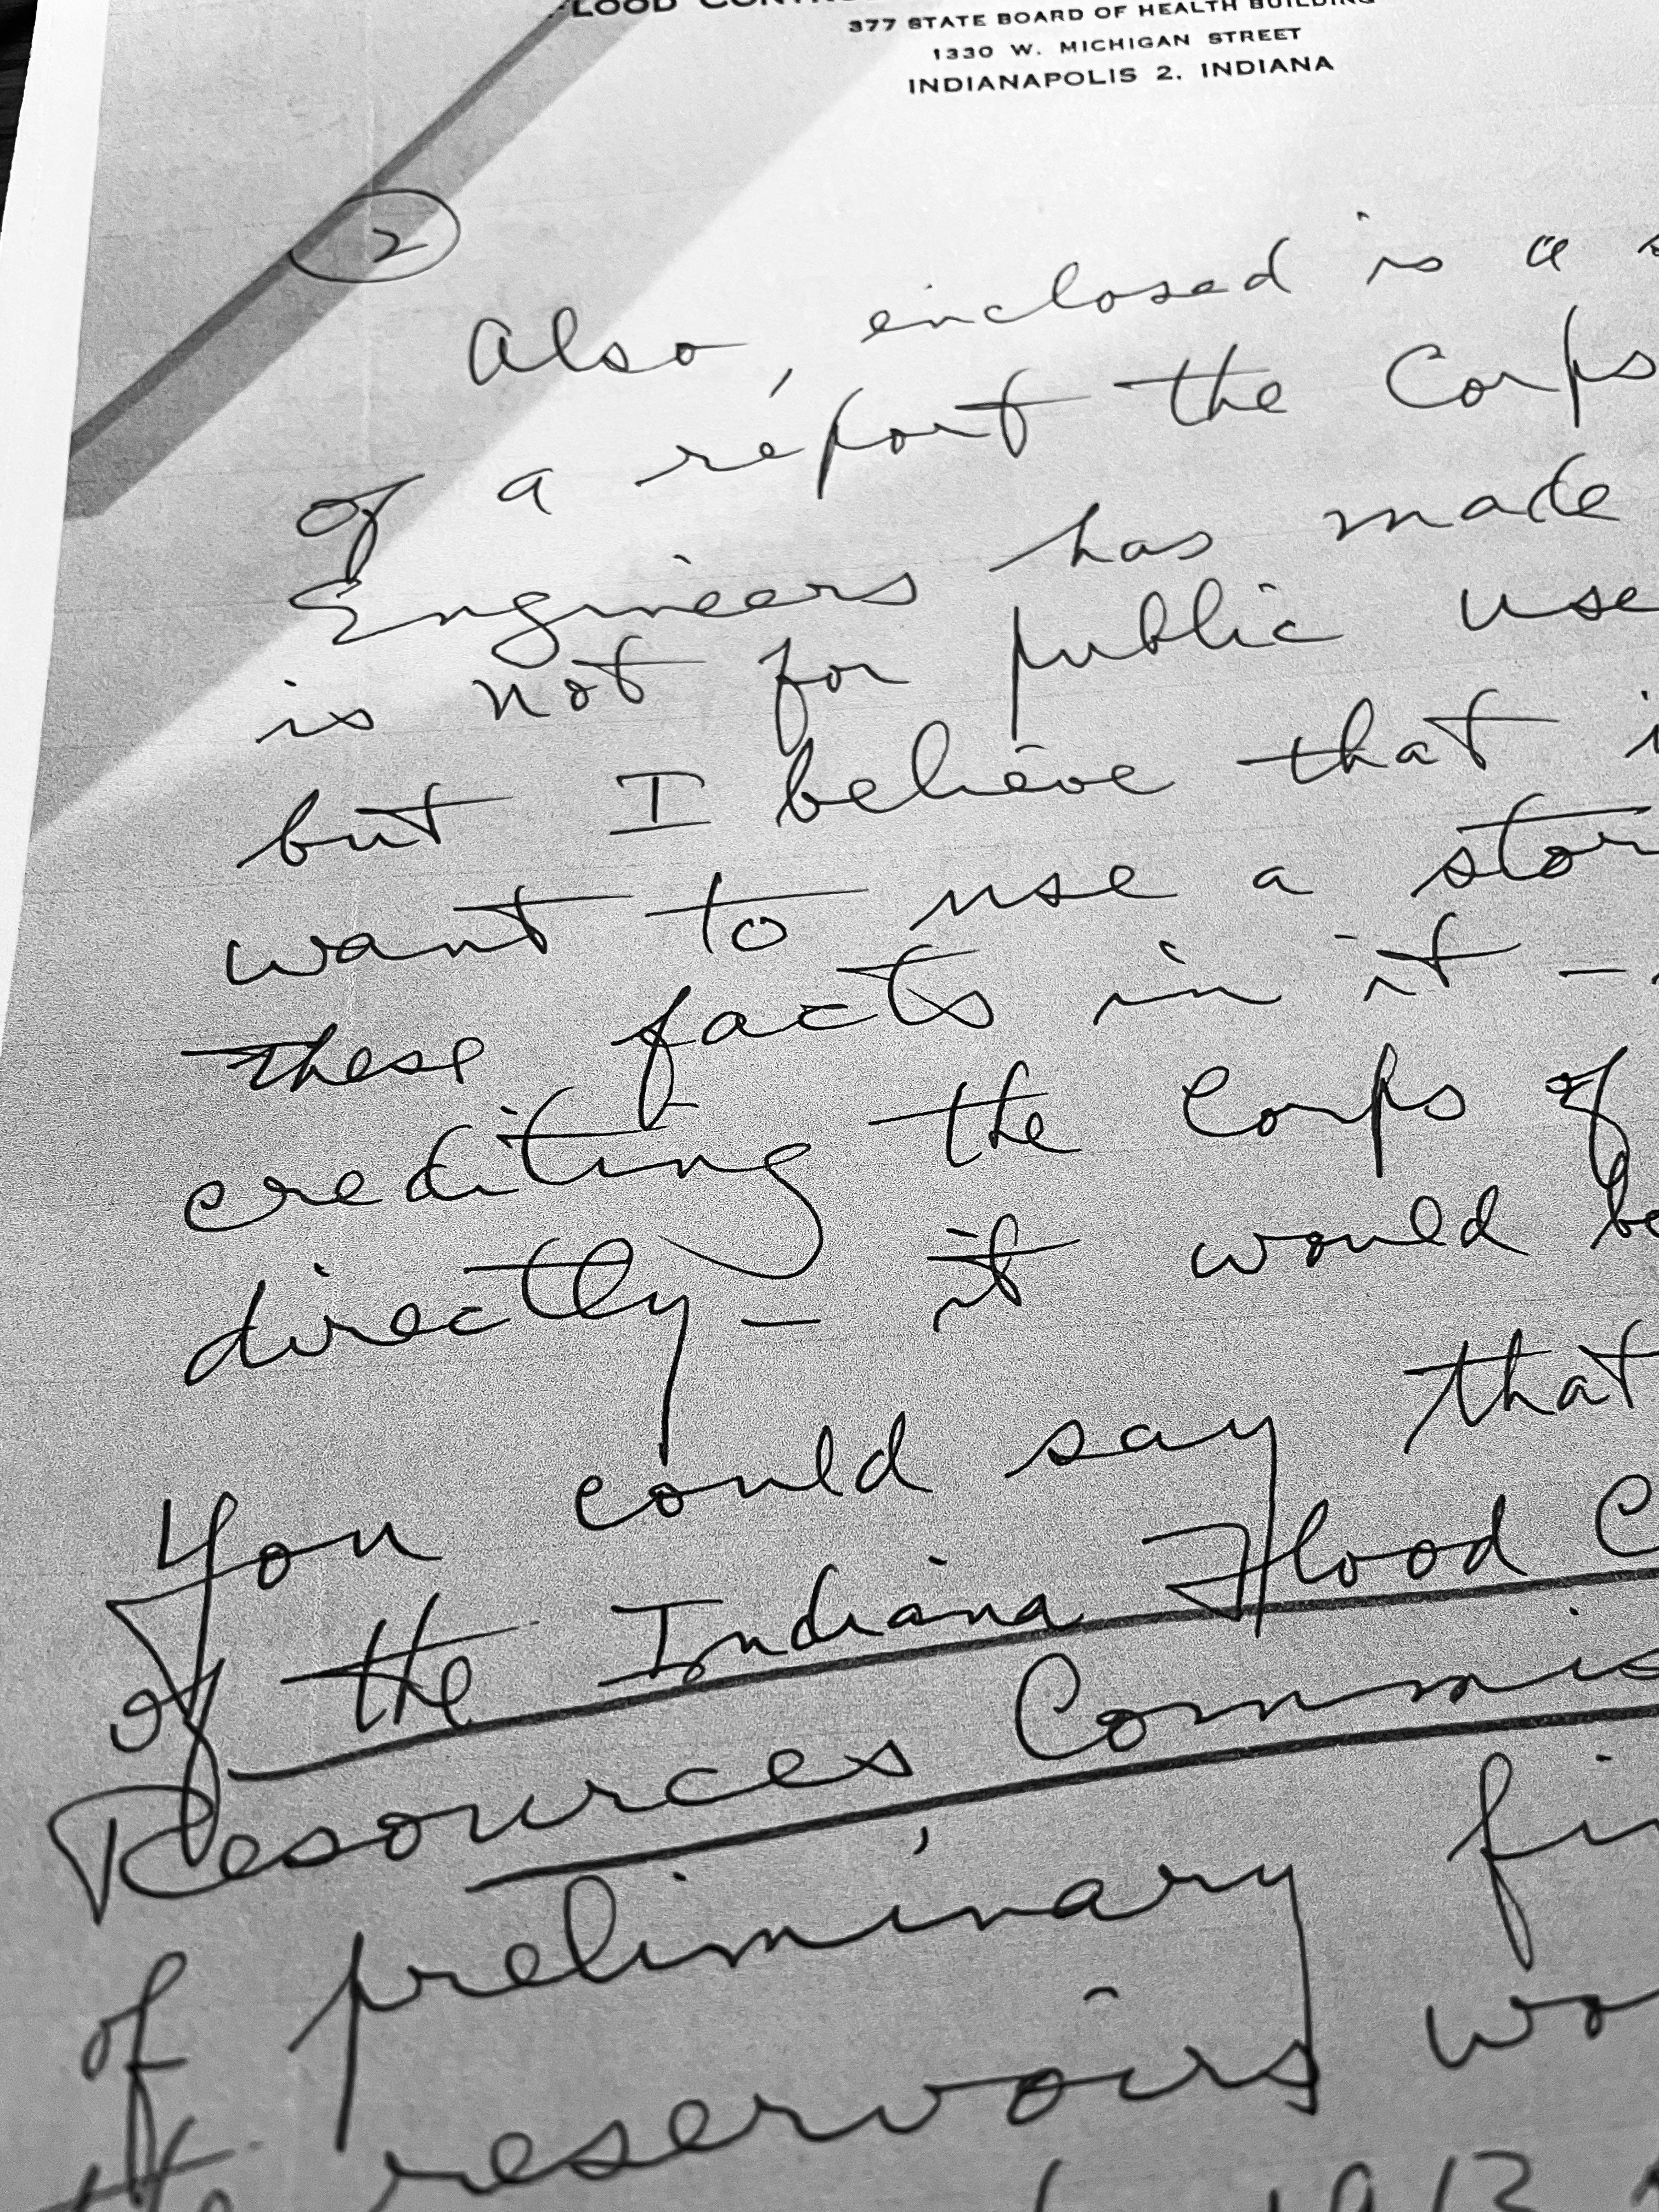 FLOOD
377 STATE BOARD OF HEALTH BUILDING
1330 W. MICHIGAN STREET
INDIANAPOLIS 2, INDIANA
2
Also, enclosed is a
of a report the Corps
Engineers has made
is not for public use
but I believe that
want to use a
these facts in it —
crediting the Corps of
directly — it would
You could say that
of the Indiana Flood C
Resources Commis
of preliminary
reservoirs
1913